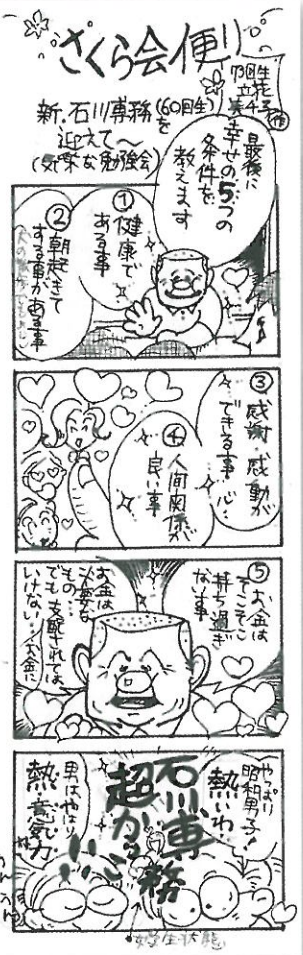 さくら会便り
73回生
立花
新.石川専務(60回生)を
迎えて〜
(気楽な勉強会)
最後に
幸せの5つの
条件を
教えます
①健康で
ある事
②朝起きて
する事がある事
③感謝・感動が
できる事
④人間関係が
良い事
⑤お金は
そこそこ
持ち過ぎ
ない事
お金は
必要な
もの…
でも支配されては
いけない!お金に
やっぱり
昭和男子!
熱いわ!
石川専務
超かっこ
男はやはり
熱意気力